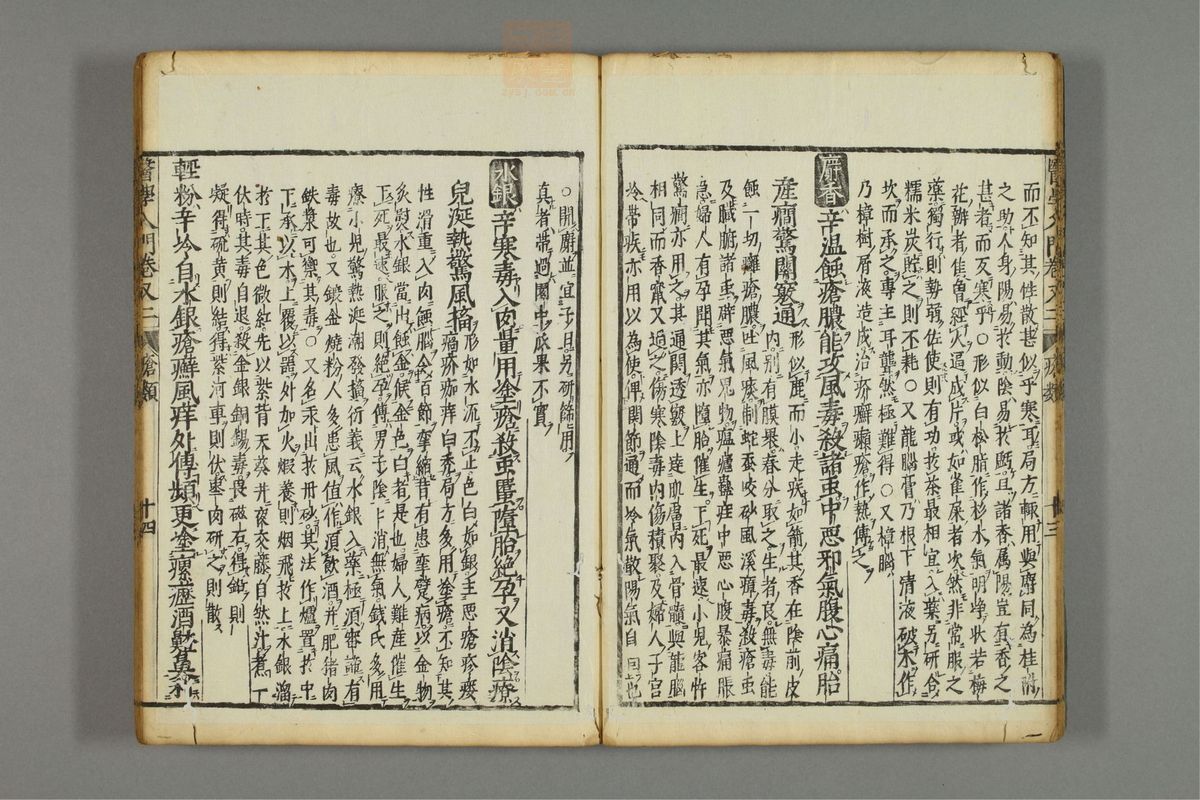 醫學入門卷又二 瘡類 十三
而不知其性散甚似乎寒耳局方輒用與麝同為桂附
之助人身陽易於動陰易於虧且諸香屬陽豈有香之
甚者而反寒乎○形似白松脂作杉木氣明淨狀若梅
花瓣者佳曾經火逼成片或如雀屎者次然非常服之
藥獨行則勢弱佐使則有功於茶最相宜入藥另研合
糯米炭貯之則不耗○又龍腦膏乃根下清液破木作
坎而承之專主耳聾然極難得○又樟腦
乃樟樹屑液造成治疥癬癩瘡作熱傅之
麝香 辛溫蝕瘡膿能攻風毒殺諸虫中惡邪氣腹心痛胎
產癎驚關竅通 形似鹿而小走疾如箭其香在陰前皮
內別有膜裹春分取之生者良無毒能
蝕一切癰瘡膿吐風痰制蛇蚕咬砂風溪瘴毒殺瘡虫
及臟腑諸虫辟惡氣鬼物瘟瘧蠱疰中惡心腹暴痛脹
急婦人有孕聞其氣亦墮胎催生下死最速小兒客忤
驚癎亦用之其通關透竅上達肌膚內入骨髓與龍腦
相同而香竄又過之傷寒陰毒內傷積聚及婦人子宮
冷帶疾亦用以為使俾關節通而冷氣散陽氣自回也
○開麝並宜子日另研篩用
真者帶過園中瓜果不實
水銀 辛寒毒入肉量用塗瘡殺虫蝨墮胎絕孕又消陰療
兒涎熱驚風搐 形如水流不止色白如銀主惡瘡疹瘻
瘑疥痂痒白禿局方多用塗瘡不知其
性滑重入肉蝕腦令百節攣縮昔有患攣躄病以金物
炙熨水銀當出蝕金候金色白者是也婦人難產催生
下死最速服之則絕孕傅男子陰下消無氣錢氏多用
療小兒驚熱涎潮發搐衍義云水銀入藥極須審謹有
毒故也又鍛金燒粉人多患風値作須飲酒并肥猪肉
鉄漿可禦其毒○又名汞出於丹砂其法作爐置於中
下承以水上覆以器外加火煆養則烟飛於上水銀溜
於下其色微紅先以紫背天葵并夜交藤自然汁煮一
伏時其毒自退殺金銀銅錫毒畏磁石得鉛則
凝得硫黄則結得紫河車則伏棗肉研之則散
輕粉辛冷自水銀瘡癬風痒外傅頻更塗瘰癧酒皶鼻
醫學入門卷又二 瘡類 十四